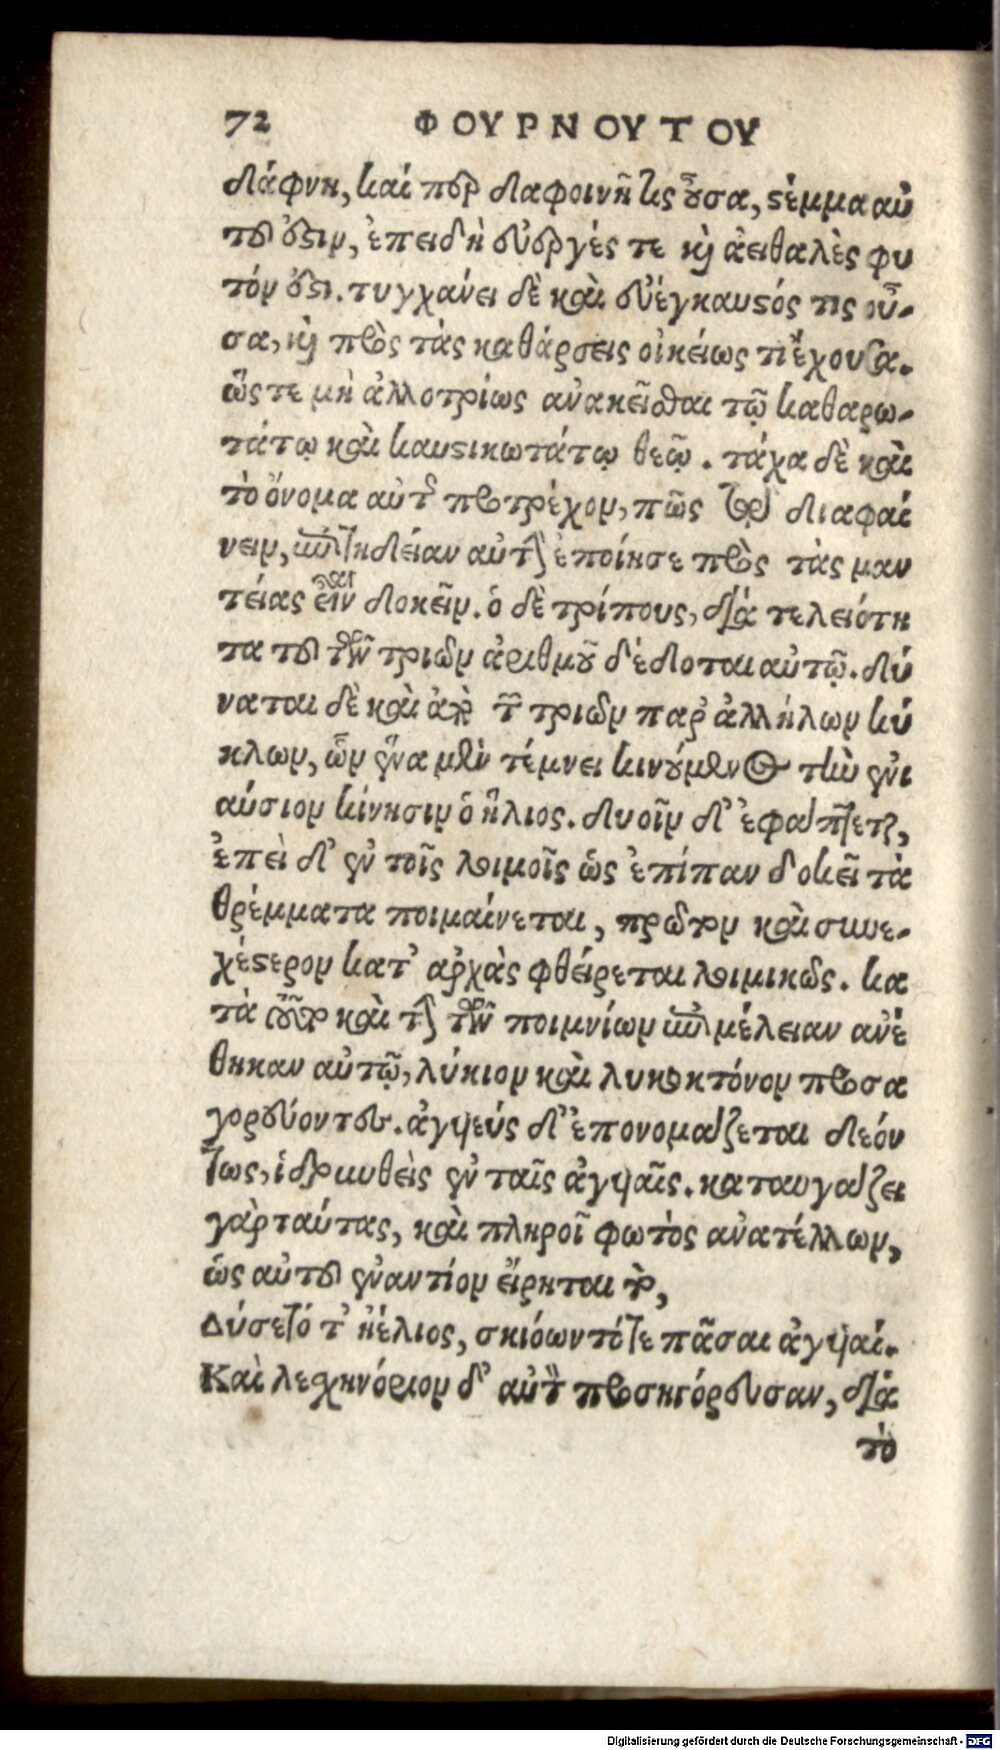 72 ΦΟΥΡΝΟΥΤΟΥ
δάφνη, καί περ δαφοινή τις οὖσα, στέμμα αὐ
τοῦ ἐστιν, ἐπειδὴ εὐεργές τε καὶ ἀειθαλὲς φυ
τόν ἐστι. τυγχάνει δὲ καὶ εὐέγκαυστός τις οὖ-
σα, καὶ πρὸς τὰς καθάρσεις οἰκείως τι ἔχουσα.
ὥστε μὴ ἀλλοτρίως ἀνακεῖσθαι τῷ καθαρω-
τάτῳ καὶ καυστικωτάτῳ θεῷ. τάχα δὲ καὶ
τὸ ὄνομα αὐτῆς προτρέχον, πῶς διαφαί
νειν, ἐπιτηδείαν αὐτὴν ἐποίησε πρὸς τὰς μαν
τείας εἶναι δοκεῖν. ὁ δὲ τρίπους, διὰ τελειότη
τα τοῦ τῶν τριῶν ἀριθμοῦ δέδοται αὐτῷ. δύ
ναται δὲ καὶ ἀπὸ τῶν τριῶν παρ' ἀλλήλων κύ
κλων, ὧν ἕνα μὲν τέμνει κινούμενος τὴν ἐνι
αύσιον κίνησιν ὁ ἥλιος. δυοῖν δ' ἐφάπτεται,
ἐπεὶ δ' ἐν τοῖς λοιμοῖς ὡς ἐπίπαν δοκεῖ τὰ
θρέμματα ποιμαίνεται, πρῶτον καὶ συνε-
χέστερον κατ' ἀρχὰς φθείρεται λοιμικῶς. κα
τὰ τοῦτο καὶ τὴν τῶν ποιμνίων ἐπιμέλειαν ἀνέ
θηκαν αὐτῷ, λύκιον καὶ λυκοκτόνον προσα
γορεύοντες. ἀγυιεύς δ' ἐπονομάζεται δεόν
τως, ἱδρυνθεὶς ἐν ταῖς ἀγυιαῖς. καταυγάζει
γὰρ ταύτας, καὶ πληροῖ φωτὸς ἀνατέλλων,
ὡς αὐτοῦ ἐναντίον εἴρηται τὸ,
Δύσετό τ' ἠέλιος, σκιόωντό τε πᾶσαι ἀγυιαί.
Καὶ λεχηνόριον δ' αὐτὸν προσηγόρευσαν, διὰ
τὸ
Digitalisierung gefördert durch die Deutsche Forschungsgemeinschaft - DFG